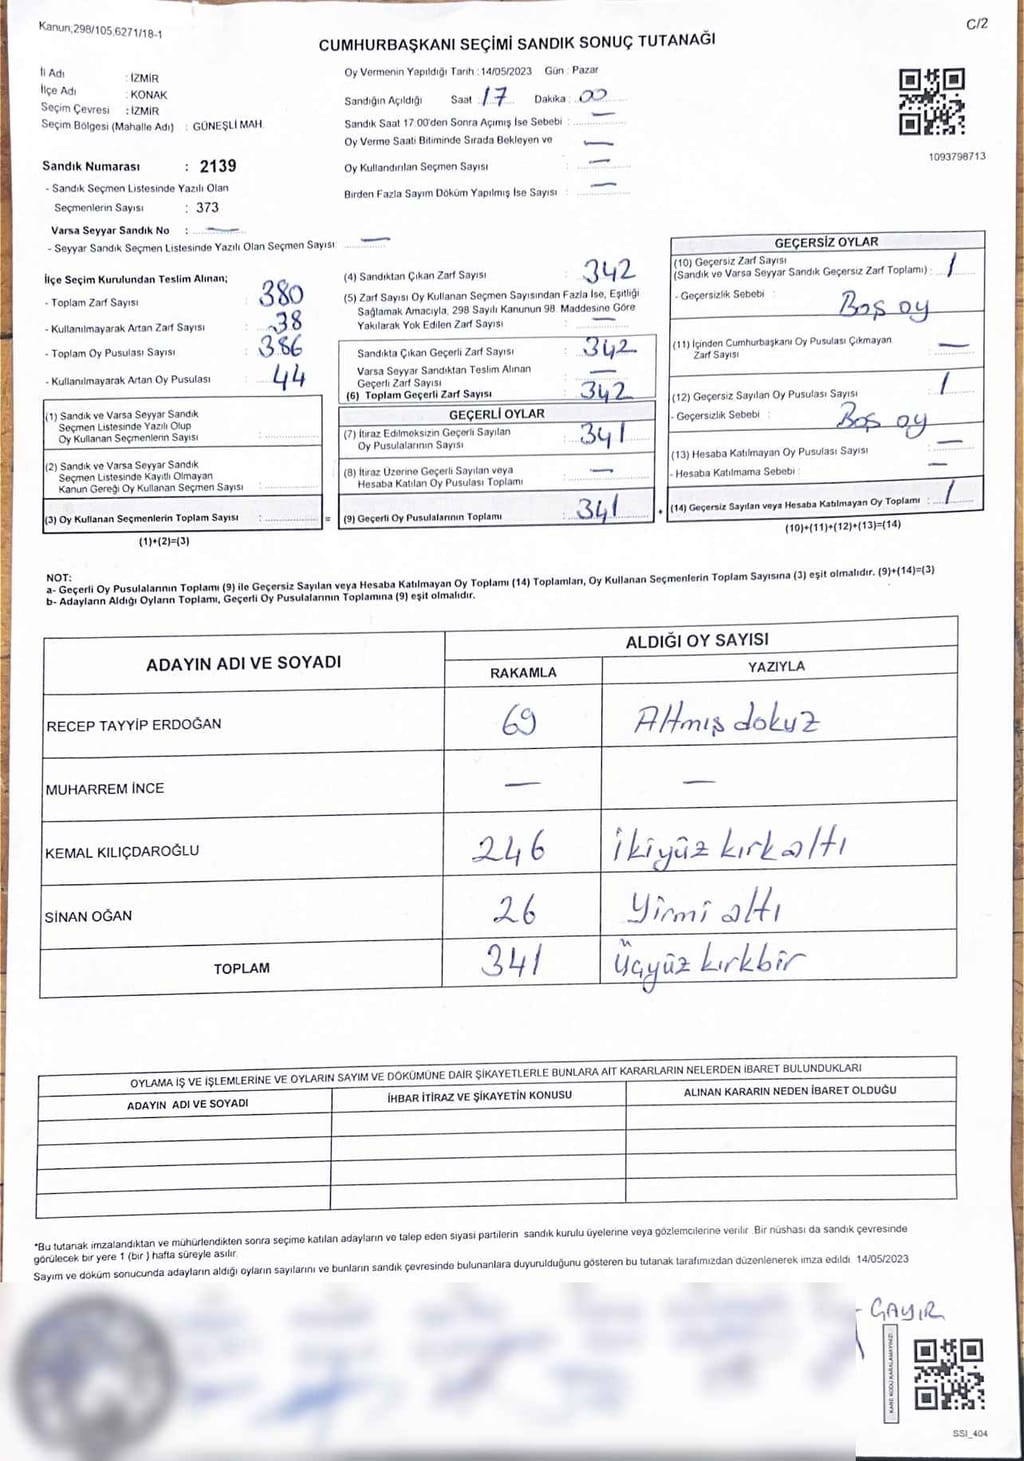 Kanun;298/105,6271/18-1
C/2
CUMHURBAŞKANI SEÇİMİ SANDIK SONUÇ TUTANAĞI
İl Adı : İZMİR
İlçe Adı : KONAK
Seçim Çevresi : İZMİR
Seçim Bölgesi (Mahalle Adı) : GÜNEŞLİ MAH.
Oy Vermenin Yapıldığı Tarih : 14/05/2023 Gün : Pazar
Sandığın Açıldığı Saat : 17 Dakika : 00
Sandık Saat 17:00'den Sonra Açımış İse Sebebi : —
Oy Verme Saati Bitiminde Sırada Bekleyen ve —
Oy Kullandırılan Seçmen Sayısı : —
Birden Fazla Sayım Döküm Yapılmış İse Sayısı : —
1093798713
Sandık Numarası : 2139
- Sandık Seçmen Listesinde Yazılı Olan
Seçmenlerin Sayısı : 373
Varsa Seyyar Sandık No : —
- Seyyar Sandık Seçmen Listesinde Yazılı Olan Seçmen Sayısı: —
İlçe Seçim Kurulundan Teslim Alınan;
- Toplam Zarf Sayısı : 380
- Kullanılmayarak Artan Zarf Sayısı : 38
- Toplam Oy Pusulası Sayısı : 386
- Kullanılmayarak Artan Oy Pusulası : 44
(1) Sandık ve Varsa Seyyar Sandık
Seçmen Listesinde Yazılı Olup
Oy Kullanan Seçmenlerin Sayısı :
(2) Sandık ve Varsa Seyyar Sandık
Seçmen Listesinde Kayıtlı Olmayan
Kanun Gereği Oy Kullanan Seçmen Sayısı :
(3) Oy Kullanan Seçmenlerin Toplam Sayısı : =
(1)+(2)=(3)
(4) Sandıktan Çıkan Zarf Sayısı : 342
(5) Zarf Sayısı Oy Kullanan Seçmen Sayısından Fazla İse, Eşitliği
Sağlamak Amacıyla, 298 Sayılı Kanunun 98. Maddesine Göre
Yakılarak Yok Edilen Zarf Sayısı : —
Sandıkta Çıkan Geçerli Zarf Sayısı : 342
Varsa Seyyar Sandıktan Teslim Alınan
Geçerli Zarf Sayısı : —
(6) Toplam Geçerli Zarf Sayısı : 342
GEÇERLİ OYLAR
(7) İtiraz Edilmeksizin Geçerli Sayılan
Oy Pusulalarının Sayısı : 341
(8) İtiraz Üzerine Geçerli Sayılan veya
Hesaba Katılan Oy Pusulası Toplamı : —
(9) Geçerli Oy Pusulalarının Toplamı : 341 +
GEÇERSİZ OYLAR
(10) Geçersiz Zarf Sayısı
(Sandık ve Varsa Seyyar Sandık Geçersiz Zarf Toplamı) : 1
- Geçersizlik Sebebi : Boş oy
(11) İçinden Cumhurbaşkanı Oy Pusulası Çıkmayan
Zarf Sayısı : —
(12) Geçersiz Sayılan Oy Pusulası Sayısı : 1
- Geçersizlik Sebebi : Boş oy
(13) Hesaba Katılmayan Oy Pusulası Sayısı : —
- Hesaba Katılmama Sebebi : —
(14) Geçersiz Sayılan veya Hesaba Katılmayan Oy Toplamı : 1
(10)+(11)+(12)+(13)=(14)
NOT:
a- Geçerli Oy Pusulalarının Toplamı (9) ile Geçersiz Sayılan veya Hesaba Katılmayan Oy Toplamı (14) Toplamları, Oy Kullanan Seçmenlerin Toplam Sayısına (3) eşit olmalıdır. (9)+(14)=(3)
b- Adayların Aldığı Oyların Toplamı, Geçerli Oy Pusulalarının Toplamına (9) eşit olmalıdır.
ADAYIN ADI VE SOYADI
ALDIĞI OY SAYISI
RAKAMLA YAZIYLA
RECEP TAYYİP ERDOĞAN 69 Altmış dokuz
MUHARREM İNCE — —
KEMAL KILIÇDAROĞLU 246 İkiyüz kırk altı
SİNAN OĞAN 26 Yirmi altı
TOPLAM 341 Üçyüz kırkbir
OYLAMA İŞ VE İŞLEMLERİNE VE OYLARIN SAYIM VE DÖKÜMÜNE DAİR ŞİKAYETLERLE BUNLARA AİT KARARLARIN NELERDEN İBARET BULUNDUKLARI
ADAYIN ADI VE SOYADI İHBAR İTİRAZ VE ŞİKAYETİN KONUSU ALINAN KARARIN NEDEN İBARET OLDUĞU
*Bu tutanak imzalandıktan ve mühürlendikten sonra seçime katılan adayların ve talep eden siyasi partilerin sandık kurulu üyelerine veya gözlemcilerine verilir. Bir nüshası da sandık çevresinde
görülecek bir yere 1 (bir ) hafta süreyle asılır.
Sayım ve döküm sonucunda adayların aldığı oyların sayılarını ve bunların sandık çevresinde bulunanlara duyurulduğunu gösteren bu tutanak tarafımızdan düzenlenerek imza edildi. 14/05/2023
GAYIR
KARE KODU KARALAMAYINIZ!
SSI_404